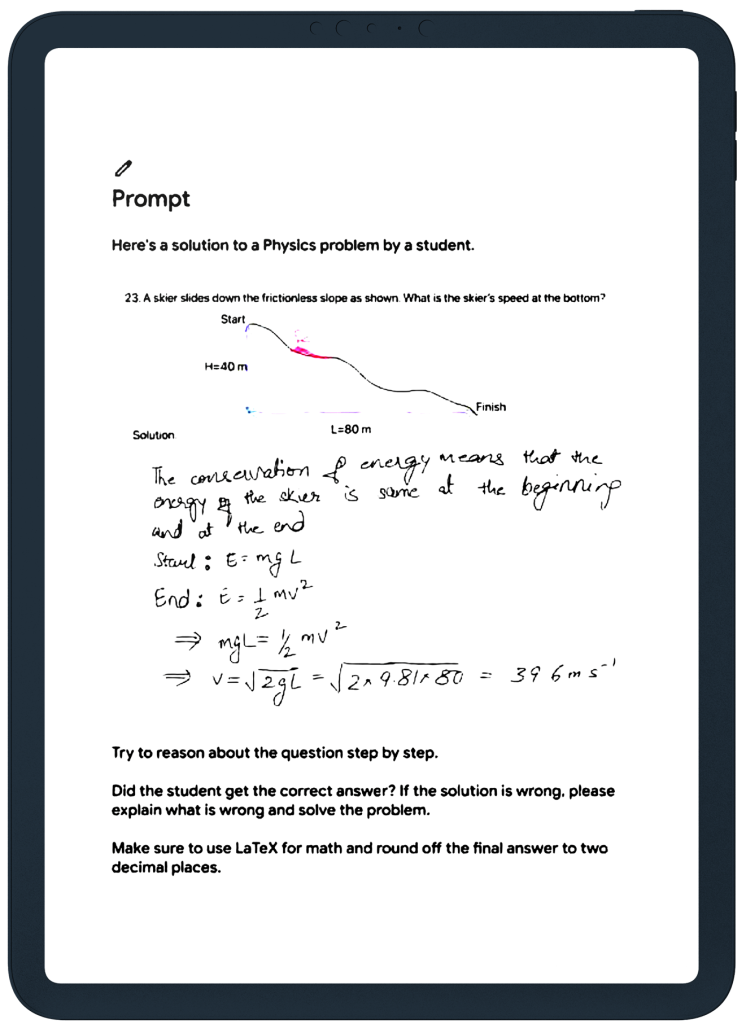 Prompt
Here's a solution to a Physics problem by a student.
23. A skier slides down the frictionless slope as shown. What is the skier's speed at the bottom?
Start
H=40 m
Finish
L=80 m
Solution
The conservation of energy means that the
energy of the skier is same at the beginning
and at the end
Start : E = mgL
End : E = 1/2 mv²
⇒ mgL = 1/2 mv²
⇒ v = √2gL = √2 × 9.81 × 80 = 39 6 m s⁻¹
Try to reason about the question step by step.
Did the student get the correct answer? If the solution is wrong, please
explain what is wrong and solve the problem.
Make sure to use LaTeX for math and round off the final answer to two
decimal places.